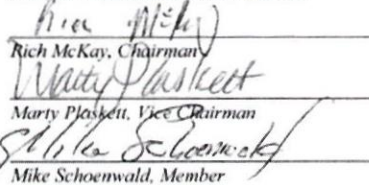 Rich McKay
Rich McKay, Chairman
Marty Plaskett
Marty Plaskett, Vice Chairman
Mike Schoenwald
Mike Schoenwald, Member